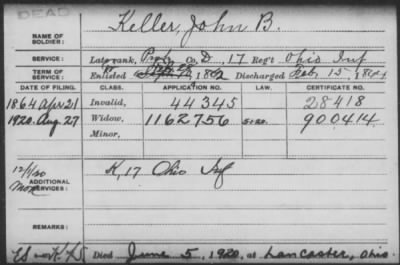 DEAD
NAME OF SOLDIER: Keller, John B.
SERVICE: Late rank, Pvt Co. D, 17 Reg't Ohio Inf
TERM OF SERVICE: Enlisted 1862 Discharged Feb. 15, 1864
DATE OF FILING. CLASS. APPLICATION NO. LAW. CERTIFICATE NO.
1864 Apr 21 Invalid, 44345 28418
1920. Aug 27 Widow, 1162756 900414
Minor,
12/1/20 ADDITIONAL SERVICES: K, 17 Ohio Inf
REMARKS:
Died June 5, 1920, at Lancaster, Ohio.